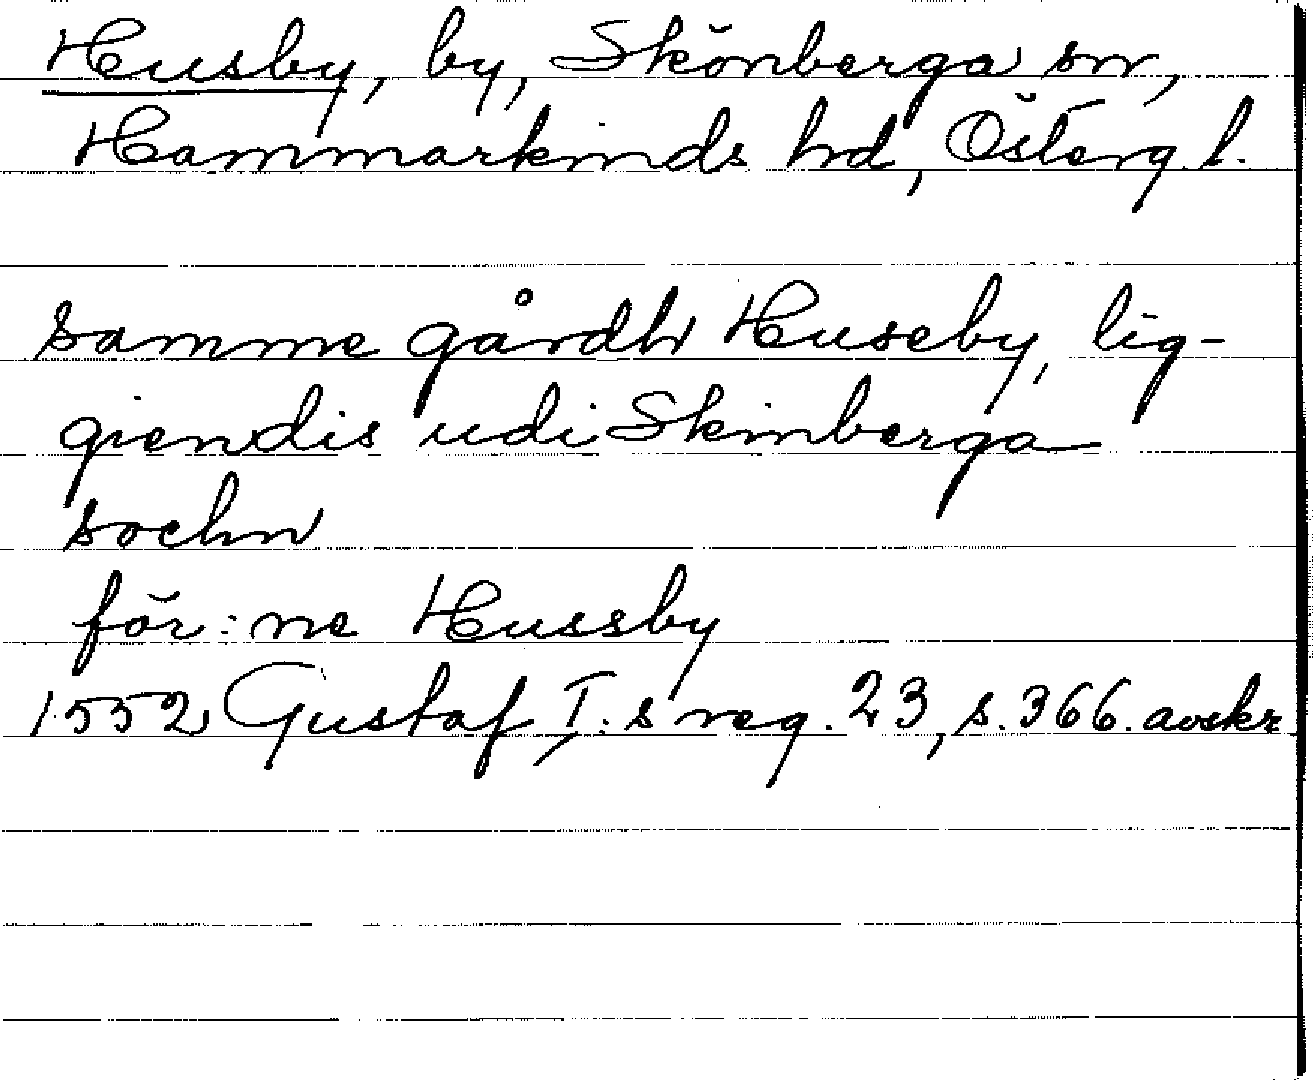 Husby, by, Skönberga sn,
Hammarkinds hd, Österg.l.
samme gårdh Huseby, lig-
giendis udi Skinberga
sochn
för:ne Hussby
1552 Gustaf I:s reg. 23, s. 366. avskr.